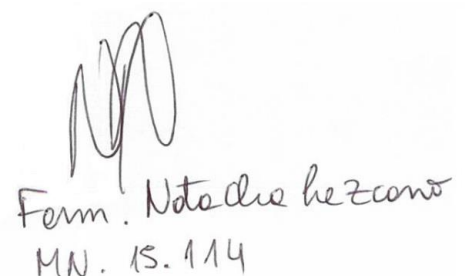 Farm. Natalia Lezcano
MN. 15.114